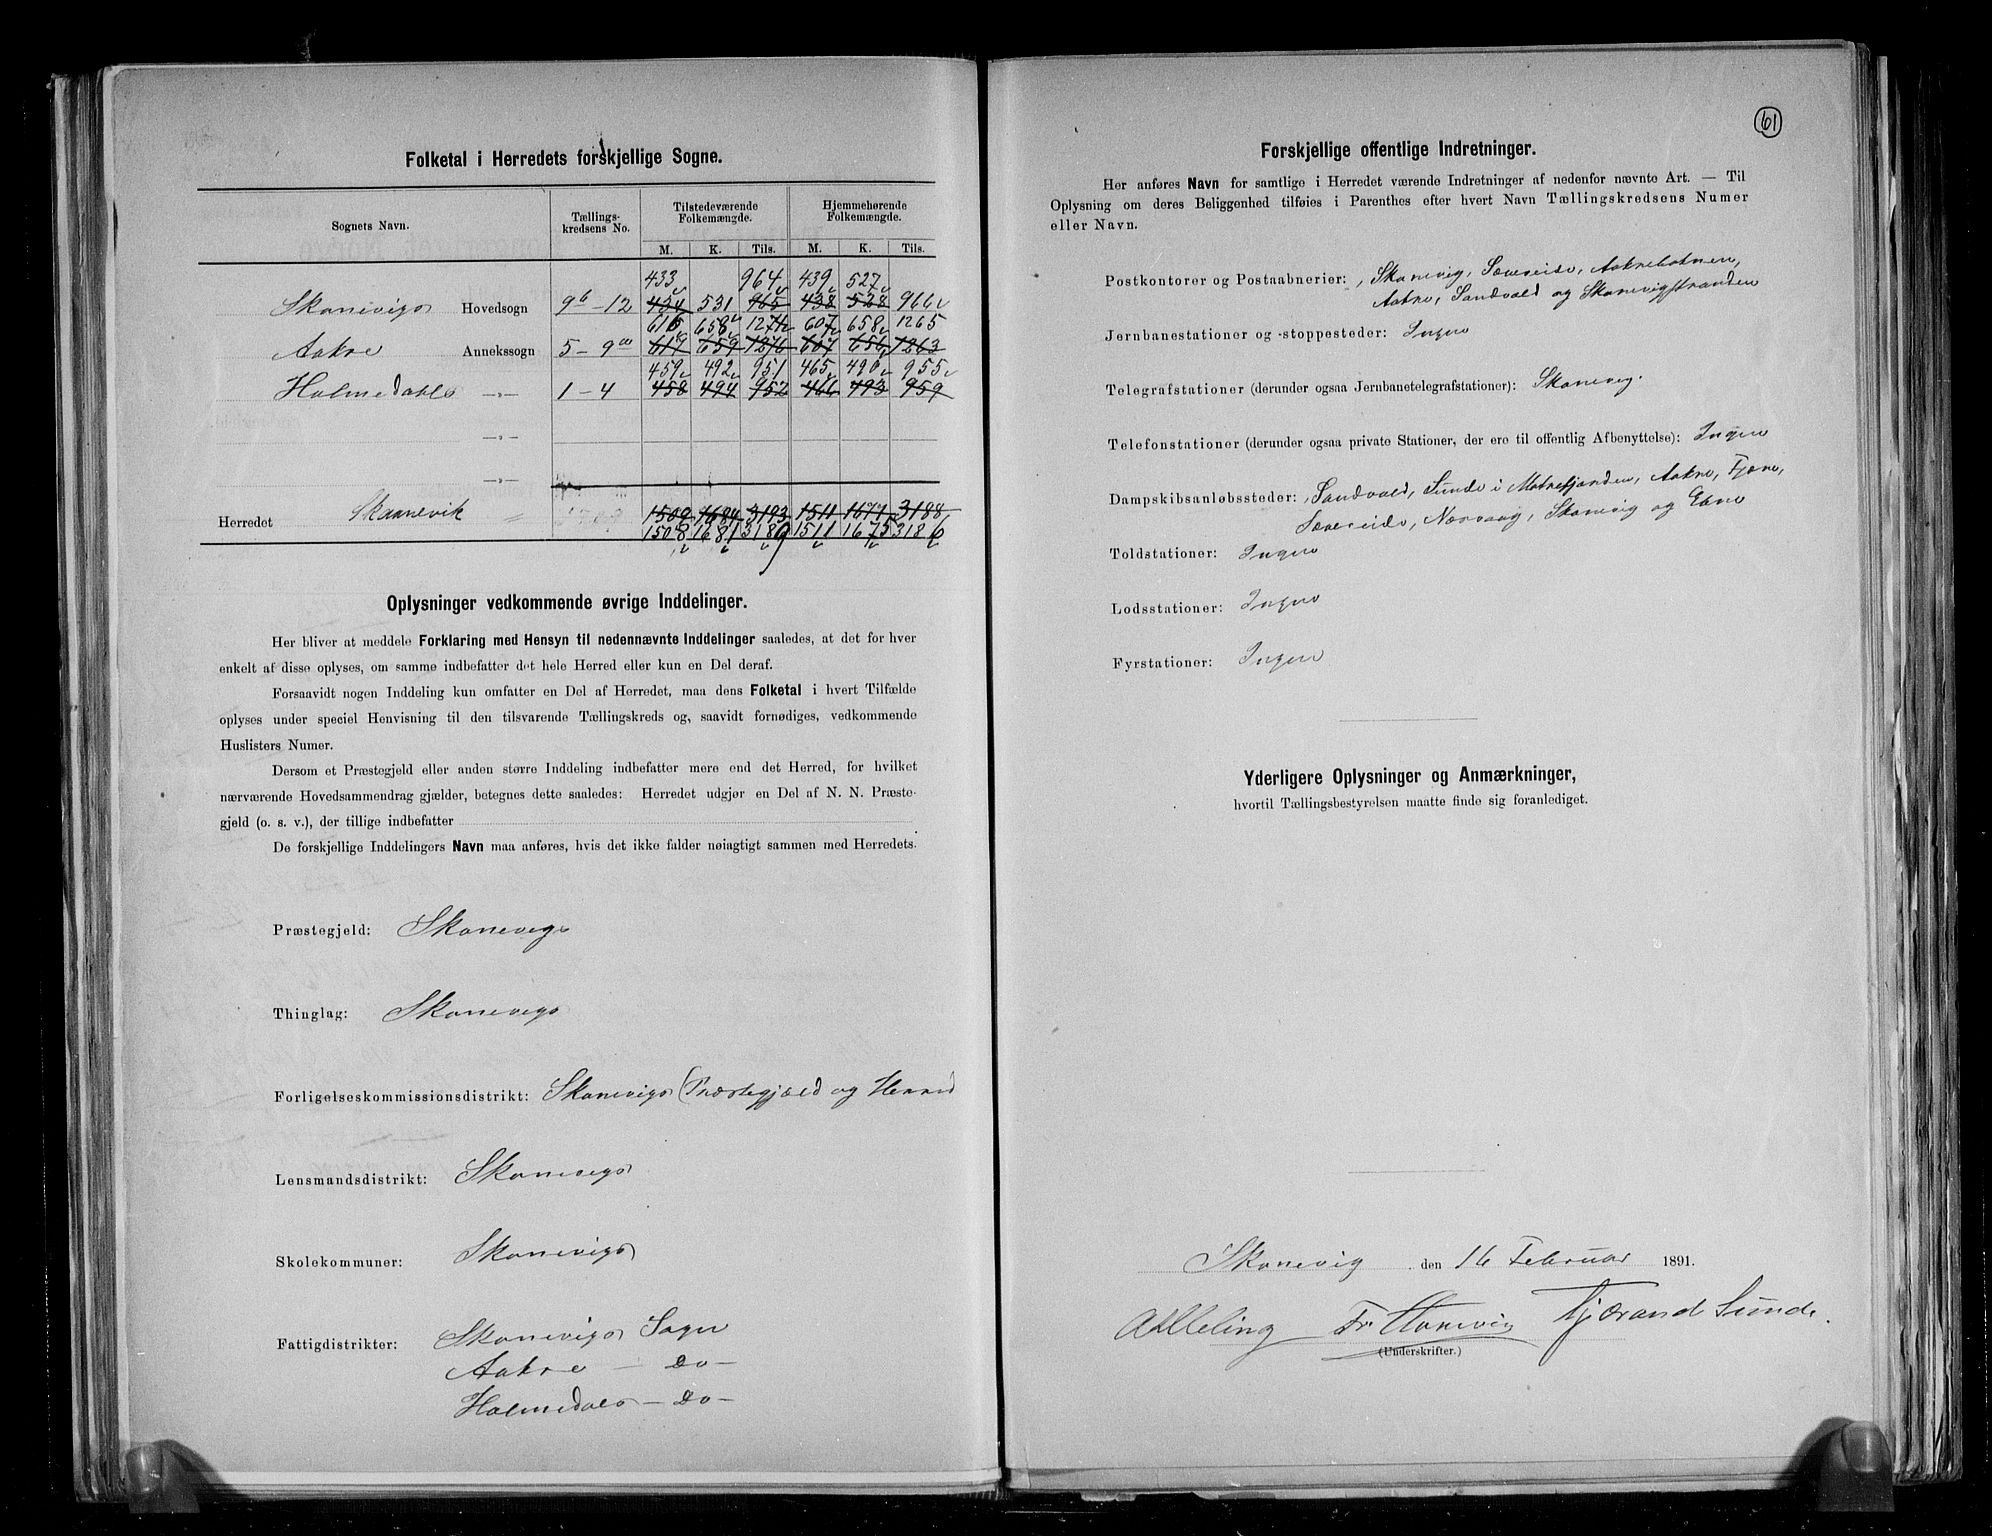 Folketal i Herredets forskjellige Sogne.
Sognets Navn. Tællings-kredsens No. Tilstedeværende Folkemængde. Hjemmehørende Folkemængde.
M. K. Tils. M. K. Tils.
433 964 439 527
Skonevigs Hovedsogn 9b–12 434 531 965 438 528 966
616 658 1274 607 658 1265
Aakre Annekssogn 5–9a 617 659 1276 607 656 1263
459 492 951 465 490 955
Holmedals –„– 1–4 458 494 952 466 493 959
–„–
–„–
Herredet Skaanevik 1509 1684 3193 1511 1677 3188
1508 1681 3189 1511 1675 3186
Oplysninger vedkommende øvrige Inddelinger.
Her bliver at meddele Forklaring med Hensyn til nedennævnte Inddelinger saaledes, at det for hver
enkelt af disse oplyses, om samme indbefatter det hele Herred eller kun en Del deraf.
Forsaavidt nogen Inddeling kun omfatter en Del af Herredet, maa dens Folketal i hvert Tilfælde
oplyses under speciel Henvisning til den tilsvarende Tællingskreds og, saavidt fornødiges, vedkommende
Huslisters Numer.
Dersom et Præstegjeld eller anden større Inddeling indbefatter mere end det Herred, for hvilket
nærværende Hovedsammendrag gjælder, betegnes dette saaledes: Herredet udgjør en Del af N. N. Præste-
gjeld (o. s. v.), der tillige indbefatter
De forskjellige Inddelingers Navn maa anføres, hvis det ikke falder nøiagtigt sammen med Herredets.
Præstegjeld: Skonevigs
Thinglag: Skonevigs
Forligelseskommissionsdistrikt: Skonevigs (Præstegjæld og Herred
Lensmandsdistrikt: Skonevigs
Skolekommuner: Skonevigs
Fattigdistrikter: Skonevigs Sogn
Aakre – do –
Holmedals – do –
61
Forskjellige offentlige Indretninger.
Her anføres Navn for samtlige i Herredet værende Indretninger af nedenfor nævnte Art. — Til
Oplysning om deres Beliggenhed tilføies i Parenthes efter hvert Navn Tællingskredsens Numer
eller Navn.
Postkontorer og Postaabnerier: Skonevig, Sævereide, Aakrebotnen,
Aakre, Sandvold og Skonevigstranden
Jernbanestationer og -stoppesteder: Ingen
Telegrafstationer (derunder ogsaa Jernbanetelegrafstationer): Skonevig.
Telefonstationer (derunder ogsaa private Stationer, der ere til offentlig Afbenyttelse): Ingen
Dampskibsanløbssteder: Sandvold, Sunde i Matrefjorden, Aakre, Fjære,
Sævereide, Norvaag, Skonevig og Etne
Toldstationer: Ingen
Lodsstationer: Ingen
Fyrstationer: Ingen
Yderligere Oplysninger og Anmærkninger,
hvortil Tællingsbestyrelsen maatte finde sig foranlediget.
Skonevig den 16 Februar 1891.
Fr. Skonevig Tjærand Sunde.
(Underskrifter.)